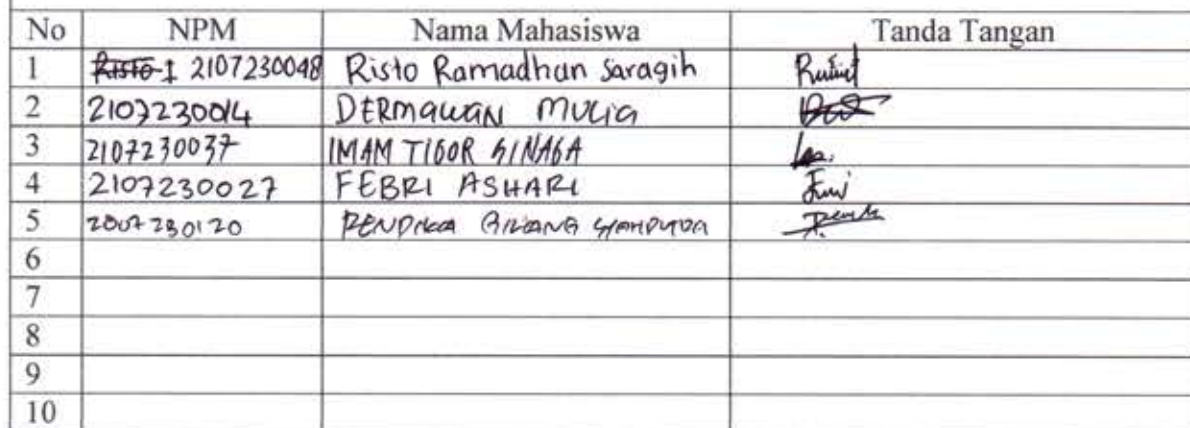 No NPM Nama Mahasiswa Tanda Tangan
1 2107230048 Risto Ramadhan Saragih
2 2107230014 DERMAWAN MULIA
3 2107230037 IMAM TIGOR SINAGA
4 2107230027 FEBRI ASHARI
5 2007230120 GILANG
6
7
8
9
10